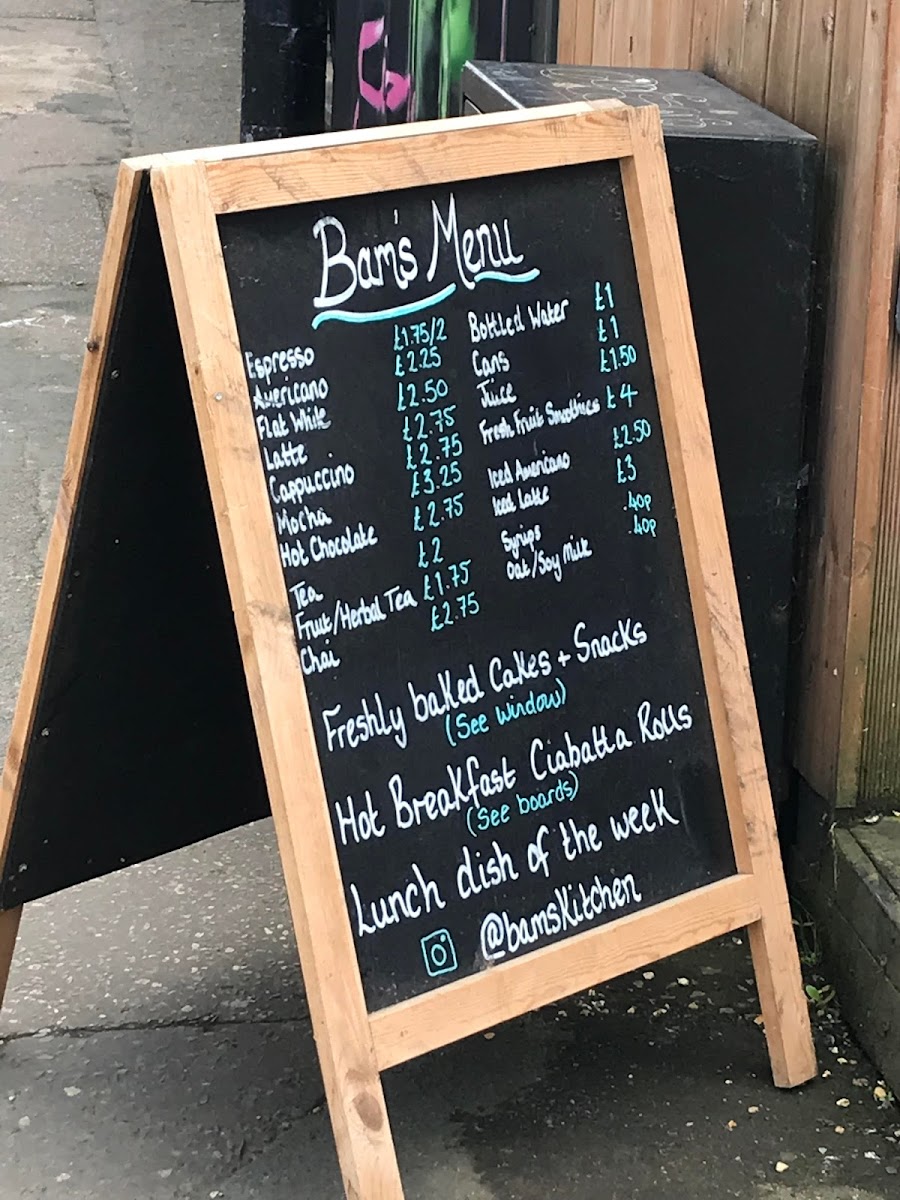 Bam's Menu
Espresso £1.75/2
Americano £2.25
Flat White £2.50
Latte £2.75
Cappuccino £2.75
Mocha £3.25
Hot Chocolate £2.75
Tea £2
Fruit/Herbal Tea £1.75
Chai £2.75
Bottled Water £1
Cans £1
Juice £1.50
Fresh Fruit Smoothies £4
Iced Americano £2.50
Iced Latte £3
Syrups .40p
Oat/Soy Milk .40p
Freshly baked Cakes + Snacks
(See window)
Hot Breakfast Ciabatta Rolls
(See boards)
Lunch dish of the week
@bamskitchen